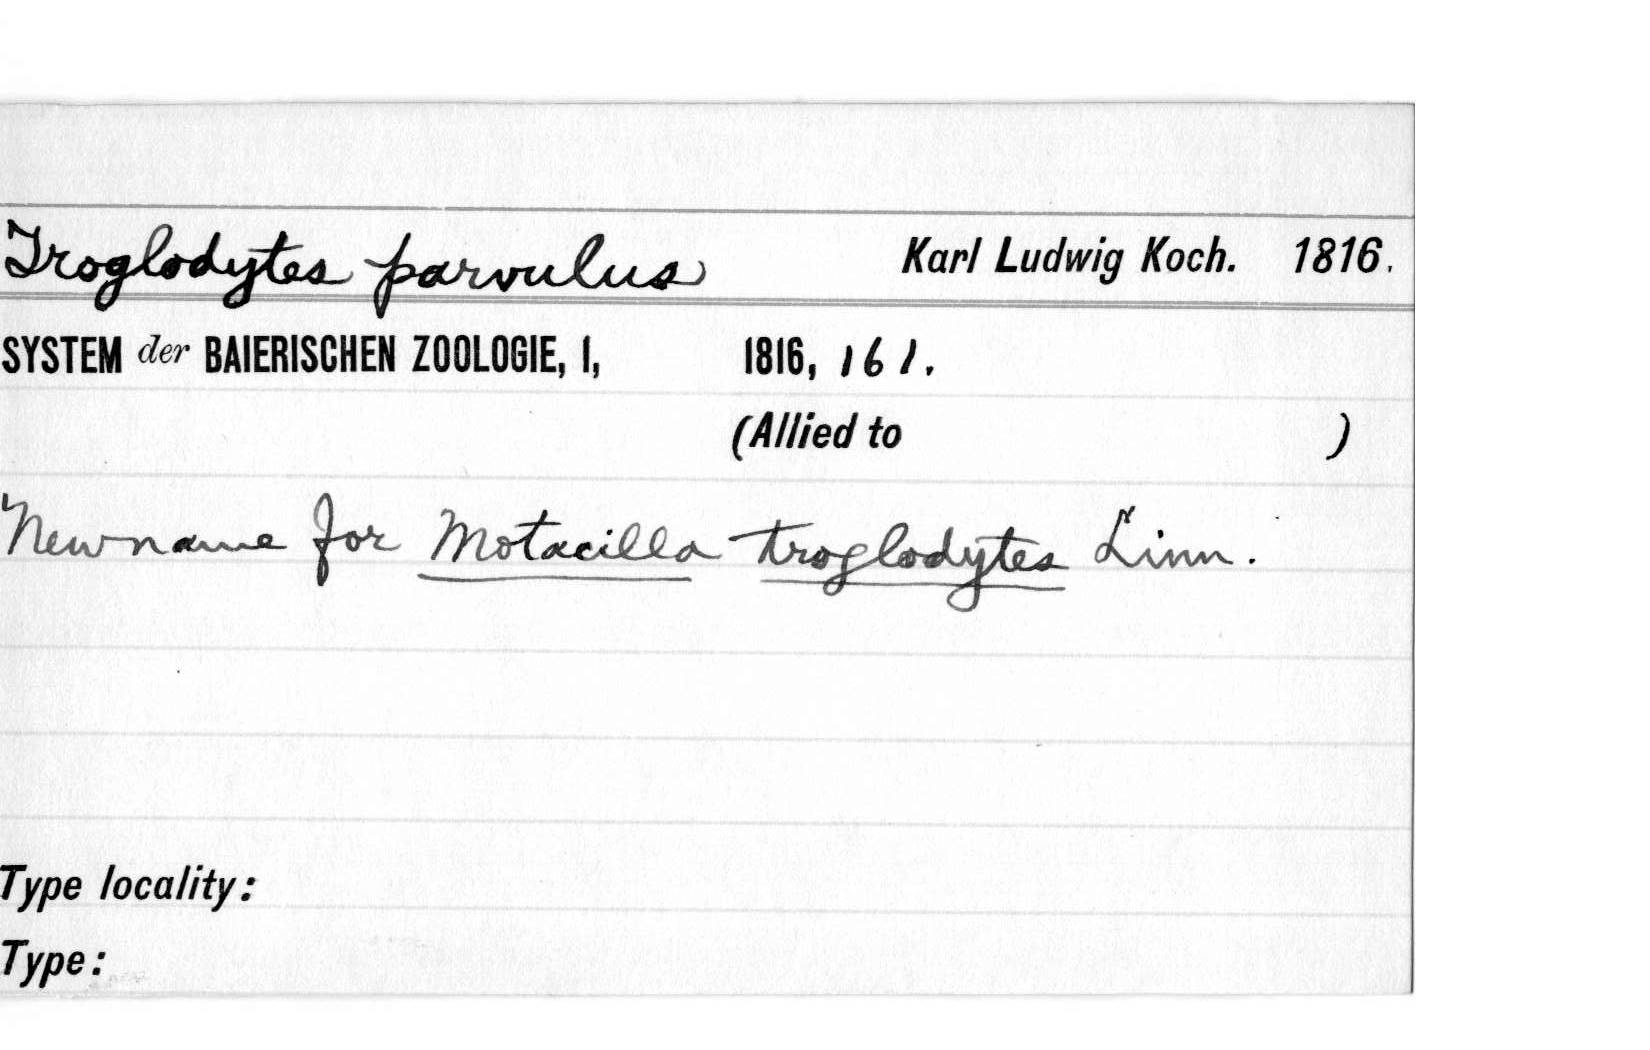 Troglodytes parvulus Karl Ludwig Koch. 1816.
SYSTEM der BAIERISCHEN ZOOLOGIE, I, 1816, 161.
(Allied to )
New name for Motacilla troglodytes Linn.
Type locality:
Type: